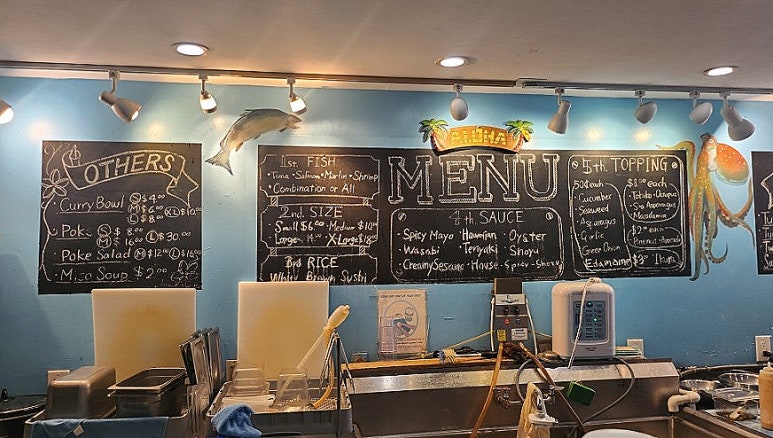 OTHERS
Curry Bowl S $4.00
M $6.00 XL $10.00
L $8.00
Poki S $8.00
M $16.00 L $30.00
Poke Salad M $12.00 L $16.00
Miso Soup $2.00
1st. FISH
· Tuna · Salmon · Marlin · Shrimp
· Combination or All
2nd. SIZE
Small $6.00 · Medium $10.00
Large · X-Large $18
3rd RICE
White Brown Sushi
ALOHA
MENU
4th SAUCE
Spicy Mayo · Hawaiian · Oyster
Wasabi · Teriyaki · Shoyu
Creamy Sesame · House · Spicy-Shoyu
5th TOPPING
50¢ each
Cucumber
Seaweed
Asparagus
Garlic
Green Onion
Edamame
$1.00 each
Macadamia
$2.00 each
Avocado
Ikura